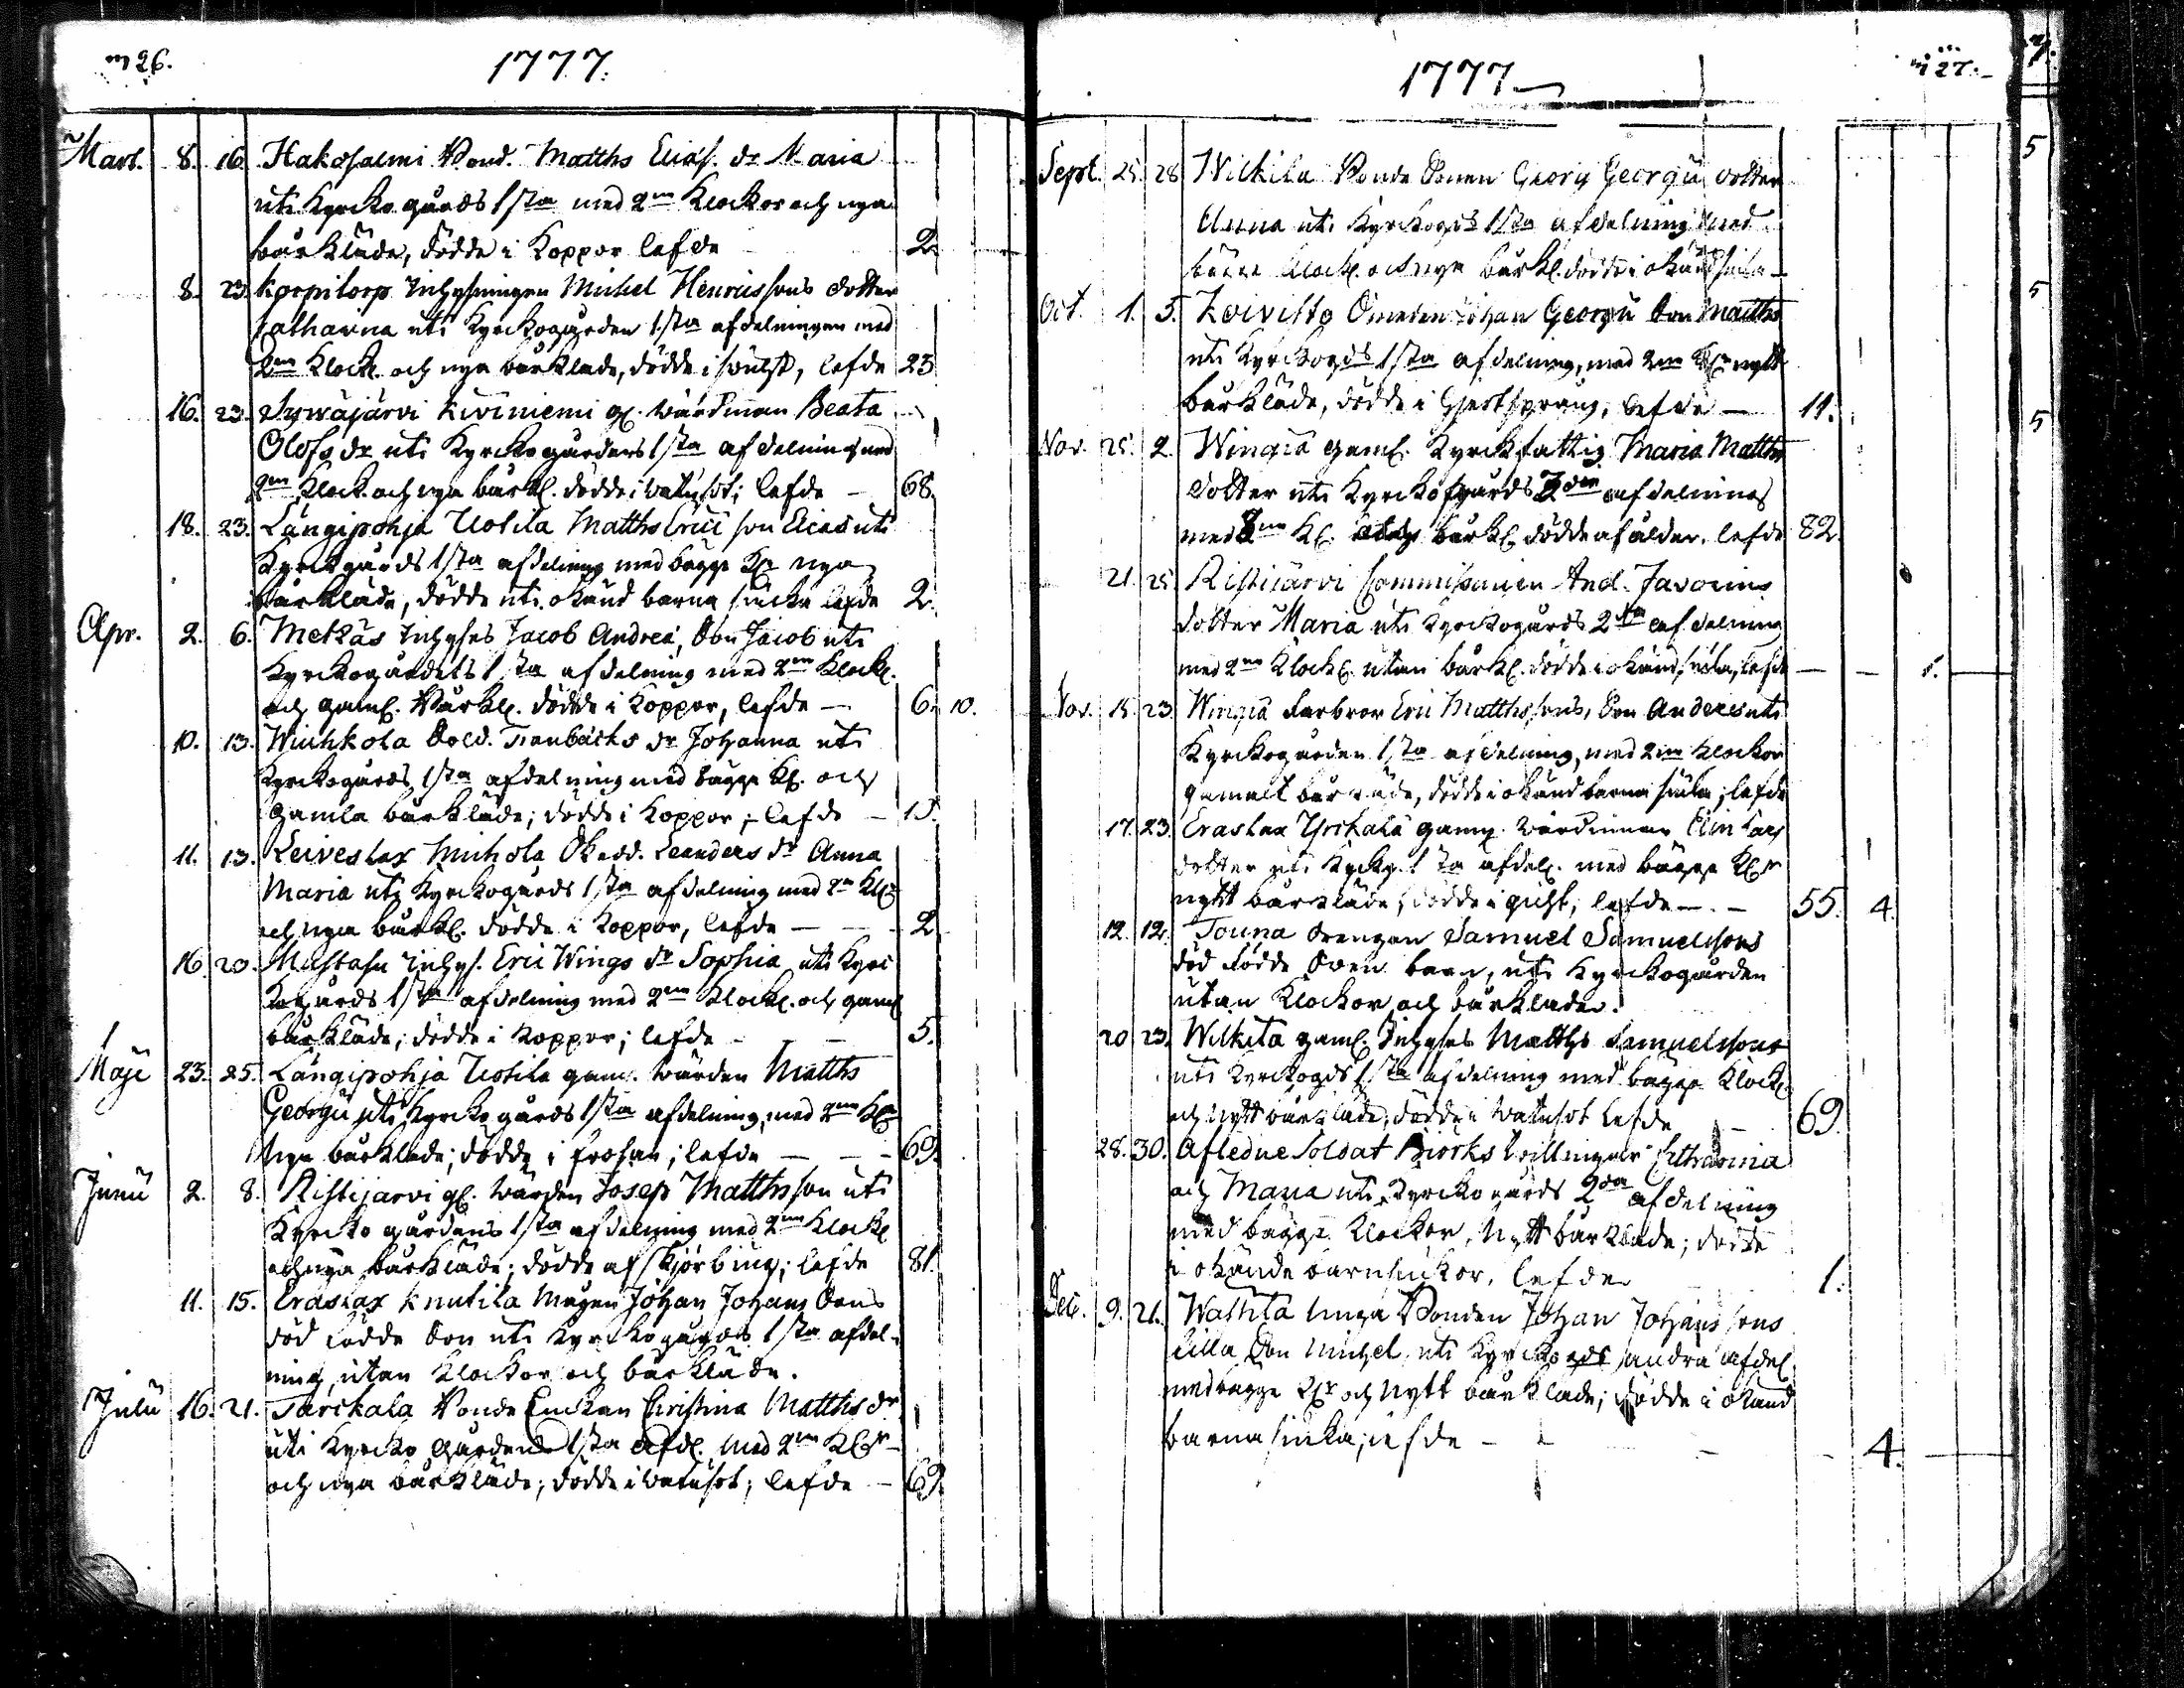 m 26.
1777.
Mart. 8. 16. Hakosalmi Bond. Matths Eliæs. dr Maria
uti Kyrko gårds 1sta med 2ne Klockor och nya
bårkläde, dödde i Koppor lefde 2.
8. 23. Korpitorp Inhysningen Michel Henricssons dotter
Catharina uti Kyrkogården 1sta afdelningen med
2ne Klock. och nya bårkläde, dödde i swulst, lefde 23
16. 23. Sywäjärvi Kiviniemi gl. Wärdinnan Beata
Olofs dr uti Kyrkogårdens 1sta afdelning med
2ne Klock. och nya bårkl. dödde i watusot; lefde — 68.
18. 23. Längipohja Uotila Matths Erici son Elias uti
Kyrkgårds 1sta afdelning med bägge Kl. nya
bårkläde, dödde uti okänd barna siucka lefde 2.
Apr. 2. 6. Mekäs Inhyses Jacob Andreæ, Son Jacob uti
Kyrkogårdets 1sta afdelning med 2ne Klock.
och gaml. Bårkl. dödde i Koppor, lefde — 6. 10.
10. 13. Wuihkola Sold. dr Johanna uti
Kyrkogårds 1sta afdelning med bägge Kl. och
gamla bårkläde; dödde i Koppor; lefde — 15.
11. 13. Leiveslax Mickola Leanders dr Anna
Maria uti Kyrkogårds 1sta afdelning med 2ne Kl.
och nya bårkl. dödde i Koppor, lefde — — 2
16. 20. Inhys. Eric Wings dr Sophia uti Kyrc
kogårds 1sta afdelning med 2ne Klock. och gaml.
bårkläde; dödde i Koppor; lefde — 5.
Maji 23. 25. Längipohja Uotila gam. Wärden Matths
Georgii uti Kyrko gårds 1sta afdelning, med 2ne Kl.
Nya bårkläde; dödde i frosan; lefde — — 69.
Junii 2. 8. Ristijärvi gl. Wärden Josep Matths son uti
Kyrko gårdens 1sta afdelning med 2ne Klock.
och nya bårkläde; dödde af skjörbiug; lefde 81.
11. 15. Eraslax Knutila Mågen Johan Johans Sons
död födde Son uti Kyrkogårds 1sta afdel-
ning, utan Klockor och bårkläde.
Julii 16. 21. Tarckala Bonde Enckan Christina Matths dr
uti Kyrko Gården 1sta Afd. Med 2ne Klr
och nya bårkläde; dödde i watusot; lefde — 69.
1777
m 27.
Sept. 25. 28 Wilkila Bonde Sonen Georg Georgii dotter
Anna uti Kyrkogds 1sta afdelning med
Klock. och nya bårkl. dödde i okänd siuka
Oct. 1. 5. Koivisto Smeden Johan Georgii Son Matths
uti Kyrkogds 1sta afdelning, med 2ne Kl. nytt
bårkläde, dödde i lefde — 11.
Nov. 25. 2. Wingiä gaml. Kyrkfattig Maria Matths
dotter uti Kyrkogårds afdelning
med Kl. bårkl. dödde af ålder. lefde 82
21. 25. Ristijärvi And. Javorins
dotter Maria uti Kyrkogårds 2dra afdelning
med 2ne Klock. utan bårkl. dödde i okänd siuka, lefde — — 5.
Nov. 15. 23. Wingiä Farbror Eric Matthssons, Son Anders uti
Kyrkogården 1sta afdelning, med 2ne Klockor
gamalt bårkläde, dödde i okänd barna siuka; lefde
17. 23. Eraslax Yrickälä gaml. Wärdinnan Elin Lars
dotter uti Kyrkg. 1sta afdel. med bägge Klr
nytt bårkläde, dödde i gicht, lefde — — 55. 4.
12. 12. Touna Drengen Samuel Samuelssons
död födde Swen barn, uti Kyrkogården
utan Klockor och bårkläde.
20 23. Wilkila gaml. Inhyses Matths Samuelssons
uti Kyrkogds 1sta afdelning med bägge Klock.
och nytt bårkläde, dödde i watusot lefde — 69.
28. 30. Afledne Soldat Biörks twillingar Catharina
och Maria uti Kyrko gårds 2dra afdelning
med bägge Klockor, Nytt bårkläde; dödde
i okände barnsiukor, lefde 1.
Dec. 9. 21. Wallila unga Bonden Johan Johanssons
lilla Son Michel uti Kyrkogds andra afdel.
med bägge Klr och Nytt bårkläde; dödde i okänd
barna siuka; lefde — — — — 4.
5
5
5